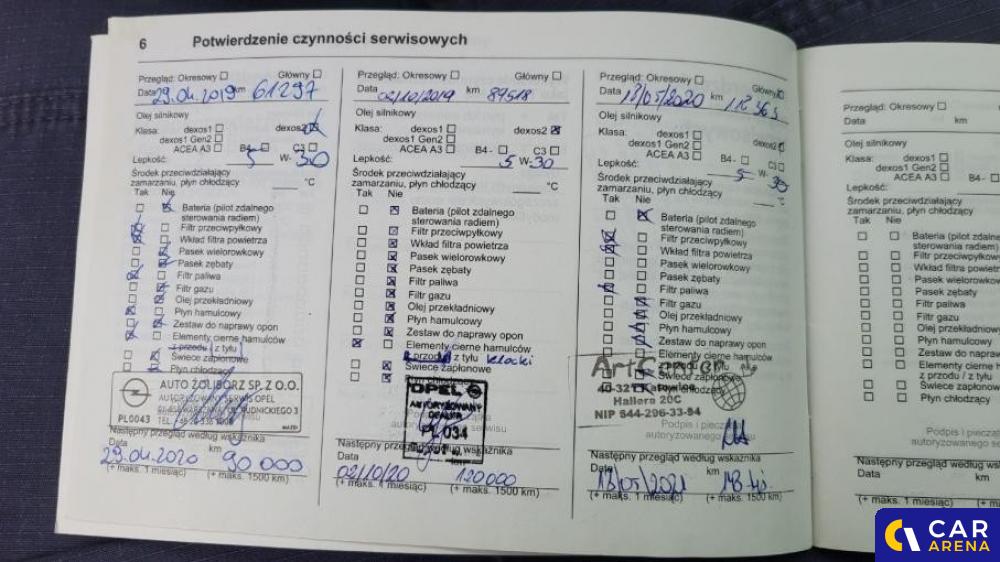 6 Potwierdzenie czynności serwisowych
Przegląd: Okresowy Główny
Data 29.04.2019 km 61297
Olej silnikowy
Klasa: dexos1 dexos2
dexos1 Gen2
ACEA A3 B4- C3
Lepkość: 5 W- 30
Środek przeciwdziałający
zamarzaniu, płyn chłodzący °C
Tak Nie
Bateria (pilot zdalnego
sterowania radiem)
Filtr przeciwpyłkowy
Wkład filtra powietrza
Pasek wielorowkowy
Pasek zębaty
Filtr paliwa
Filtr gazu
Olej przekładniowy
Płyn hamulcowy
Zestaw do naprawy opon
Elementy cierne hamulców
z przodu / z tyłu
Świece zapłonowe
Płyn chłodzący
AUTO ŻOLIBORZ SP. Z O.O.
AUTORYZOWANY SERWIS OPEL
PL0043
Następny przegląd według wskaźnika
Data km
29.04.2020 90 000
(+ maks. 1 miesiąc) (+ maks. 1500 km)
Przegląd: Okresowy Główny
Data 02/10/2019 km 89518
Olej silnikowy
Klasa: dexos1 dexos2
dexos1 Gen2
ACEA A3 B4- C3
Lepkość: 5 W-30
Środek przeciwdziałający
zamarzaniu, płyn chłodzący °C
Tak Nie
Bateria (pilot zdalnego
sterowania radiem)
Filtr przeciwpyłkowy
Wkład filtra powietrza
Pasek wielorowkowy
Pasek zębaty
Filtr paliwa
Filtr gazu
Olej przekładniowy
Płyn hamulcowy
Zestaw do naprawy opon
Elementy cierne hamulców
z przodu / z tyłu klocki
Świece zapłonowe
Płyn chłodzący
OPEL
AUTORYZOWANY
DEALER
PL 034
Następny przegląd według wskaźnika
Data km
02/10/20 120000
(+ maks. 1 miesiąc) (+ maks. 1500 km)
Przegląd: Okresowy Główny
Data 18/05/2020 km 118363
Olej silnikowy
Klasa: dexos1 dexos2
dexos1 Gen2
ACEA A3 B4- C3
Lepkość: 5 W- 30
Środek przeciwdziałający
zamarzaniu, płyn chłodzący °C
Tak Nie
Bateria (pilot zdalnego
sterowania radiem)
Filtr przeciwpyłkowy
Wkład filtra powietrza
Pasek wielorowkowy
Pasek zębaty
Filtr paliwa
Filtr gazu
Olej przekładniowy
Płyn hamulcowy
Zestaw do naprawy opon
Elementy cierne hamulców
z przodu / z tyłu
Świece zapłonowe
Płyn chłodzący
40-321 Katowice
Hallera 20C
NIP 644-296-33-84
Podpis i pieczą
autoryzowanego serwisu
Następny przegląd według wskaźnika
Data km
18/05/2021
(+ maks. 1 miesiąc) (+ maks. 1500 km)
Przegląd: Okresowy
Data km
Olej silnikowy
Klasa: dexos1
dexos1 Gen2
ACEA A3 B4-
Lepkość:
Środek przeciwdziałający
zamarzaniu, płyn chłodzący
Tak Nie
Bateria (pilot zdaln
sterowania radiem)
Filtr przeciwpyłkow
Wkład filtra powietr
Pasek wielorowkow
Pasek zębaty
Filtr paliwa
Filtr gazu
Olej przekładniowy
Płyn hamulcowy
Zestaw do naprawy
Elementy cierne ha
z przodu / z tyłu
Świece zapłonowe
Płyn chłodzący
Podpis i piec
autoryzowanego se
Następny przegląd według wska
Data km
(+ maks. 1 miesiąc) (+ m
CAR
ARENA